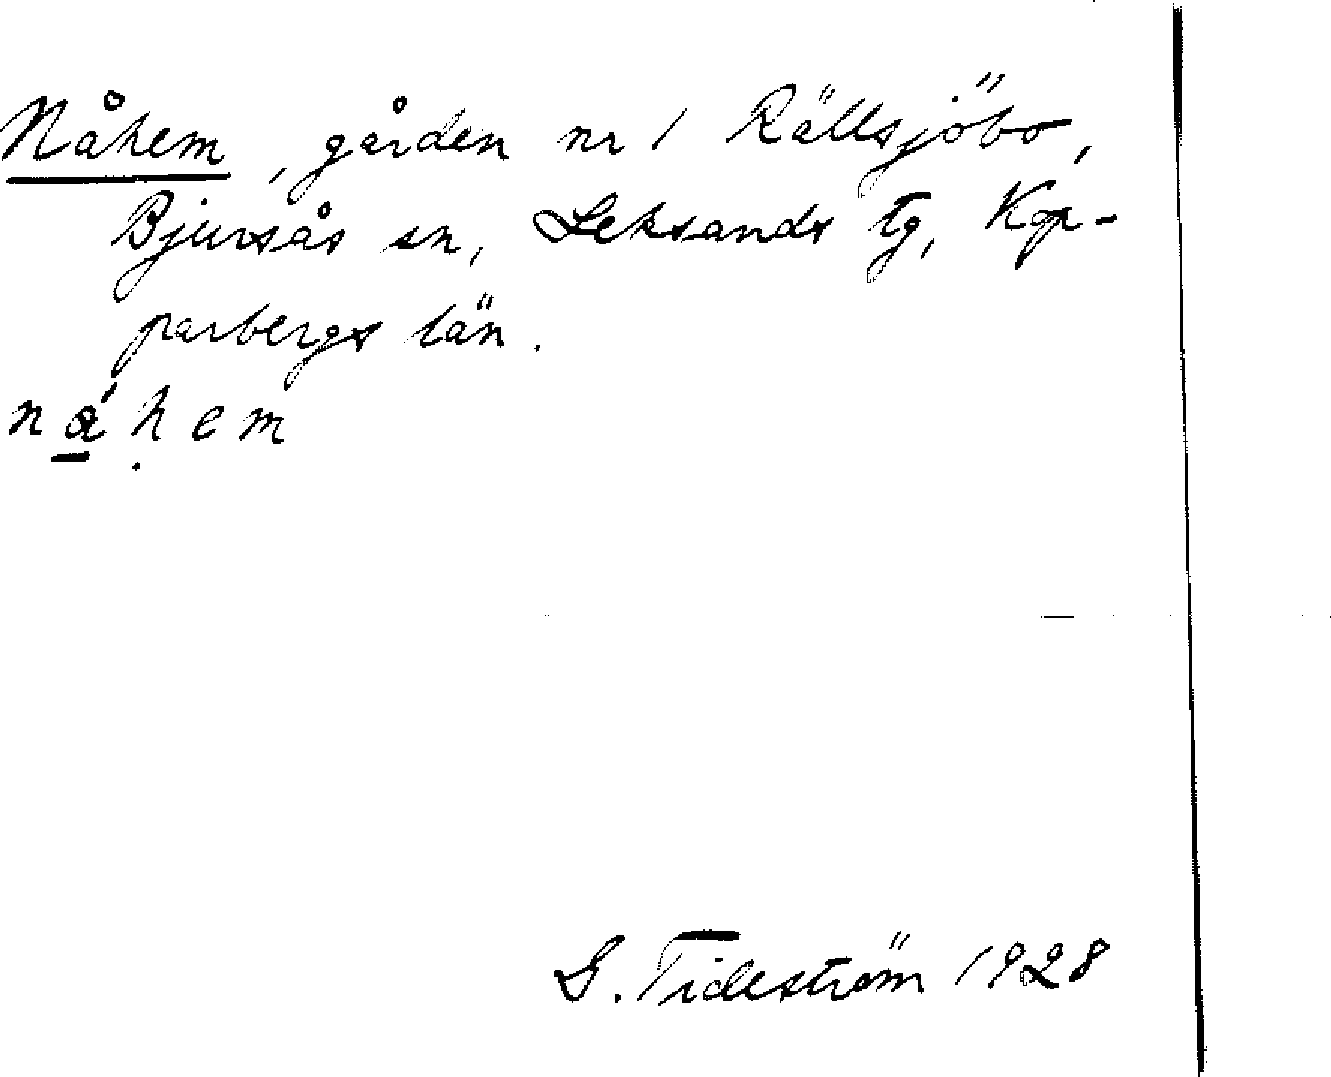 Nåhem, gården nr 1 Rällsjöbo,
Bjursås sn, Leksands tg, Kop-
parbergs län.
nåhem
G. Tideström 1928